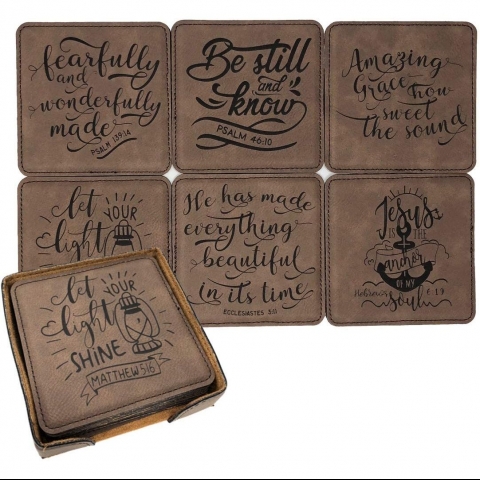 fearfully
and
wonderfully
made
PSALM 139:14
Be still
and
know
PSALM 46:10
Amazing
Grace how
sweet
the sound
let YOUR
light
He has made
everything
beautiful
in its time
ECCLESIASTES 3:11
Jesus
IS THE
anchor
OF MY
Soul
Hebrews 6:19
let YOUR
light
SHINE
MATTHEW 5:16